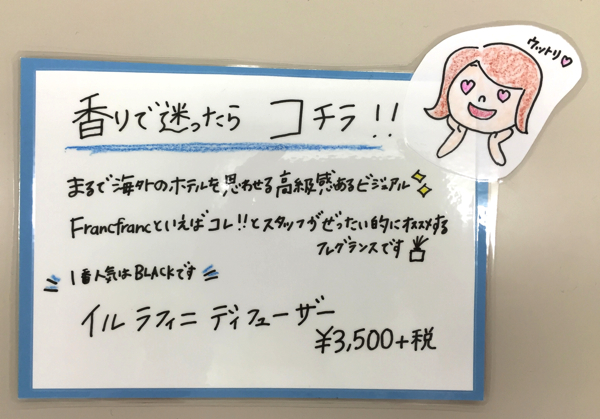 ウットリ♡
香りで迷ったら コチラ!!
まるで海外のホテルを思わせる高級感あるビジュアル
Francfrancといえばコレ!!とスタッフがぜったい的にオススメする
フレグランスです
1番人気はBLACKです
イルラフィニ ディフューザー
¥3,500+税